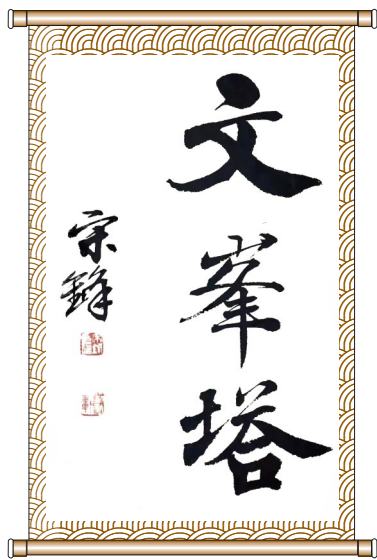 文峯塔
宗鋒